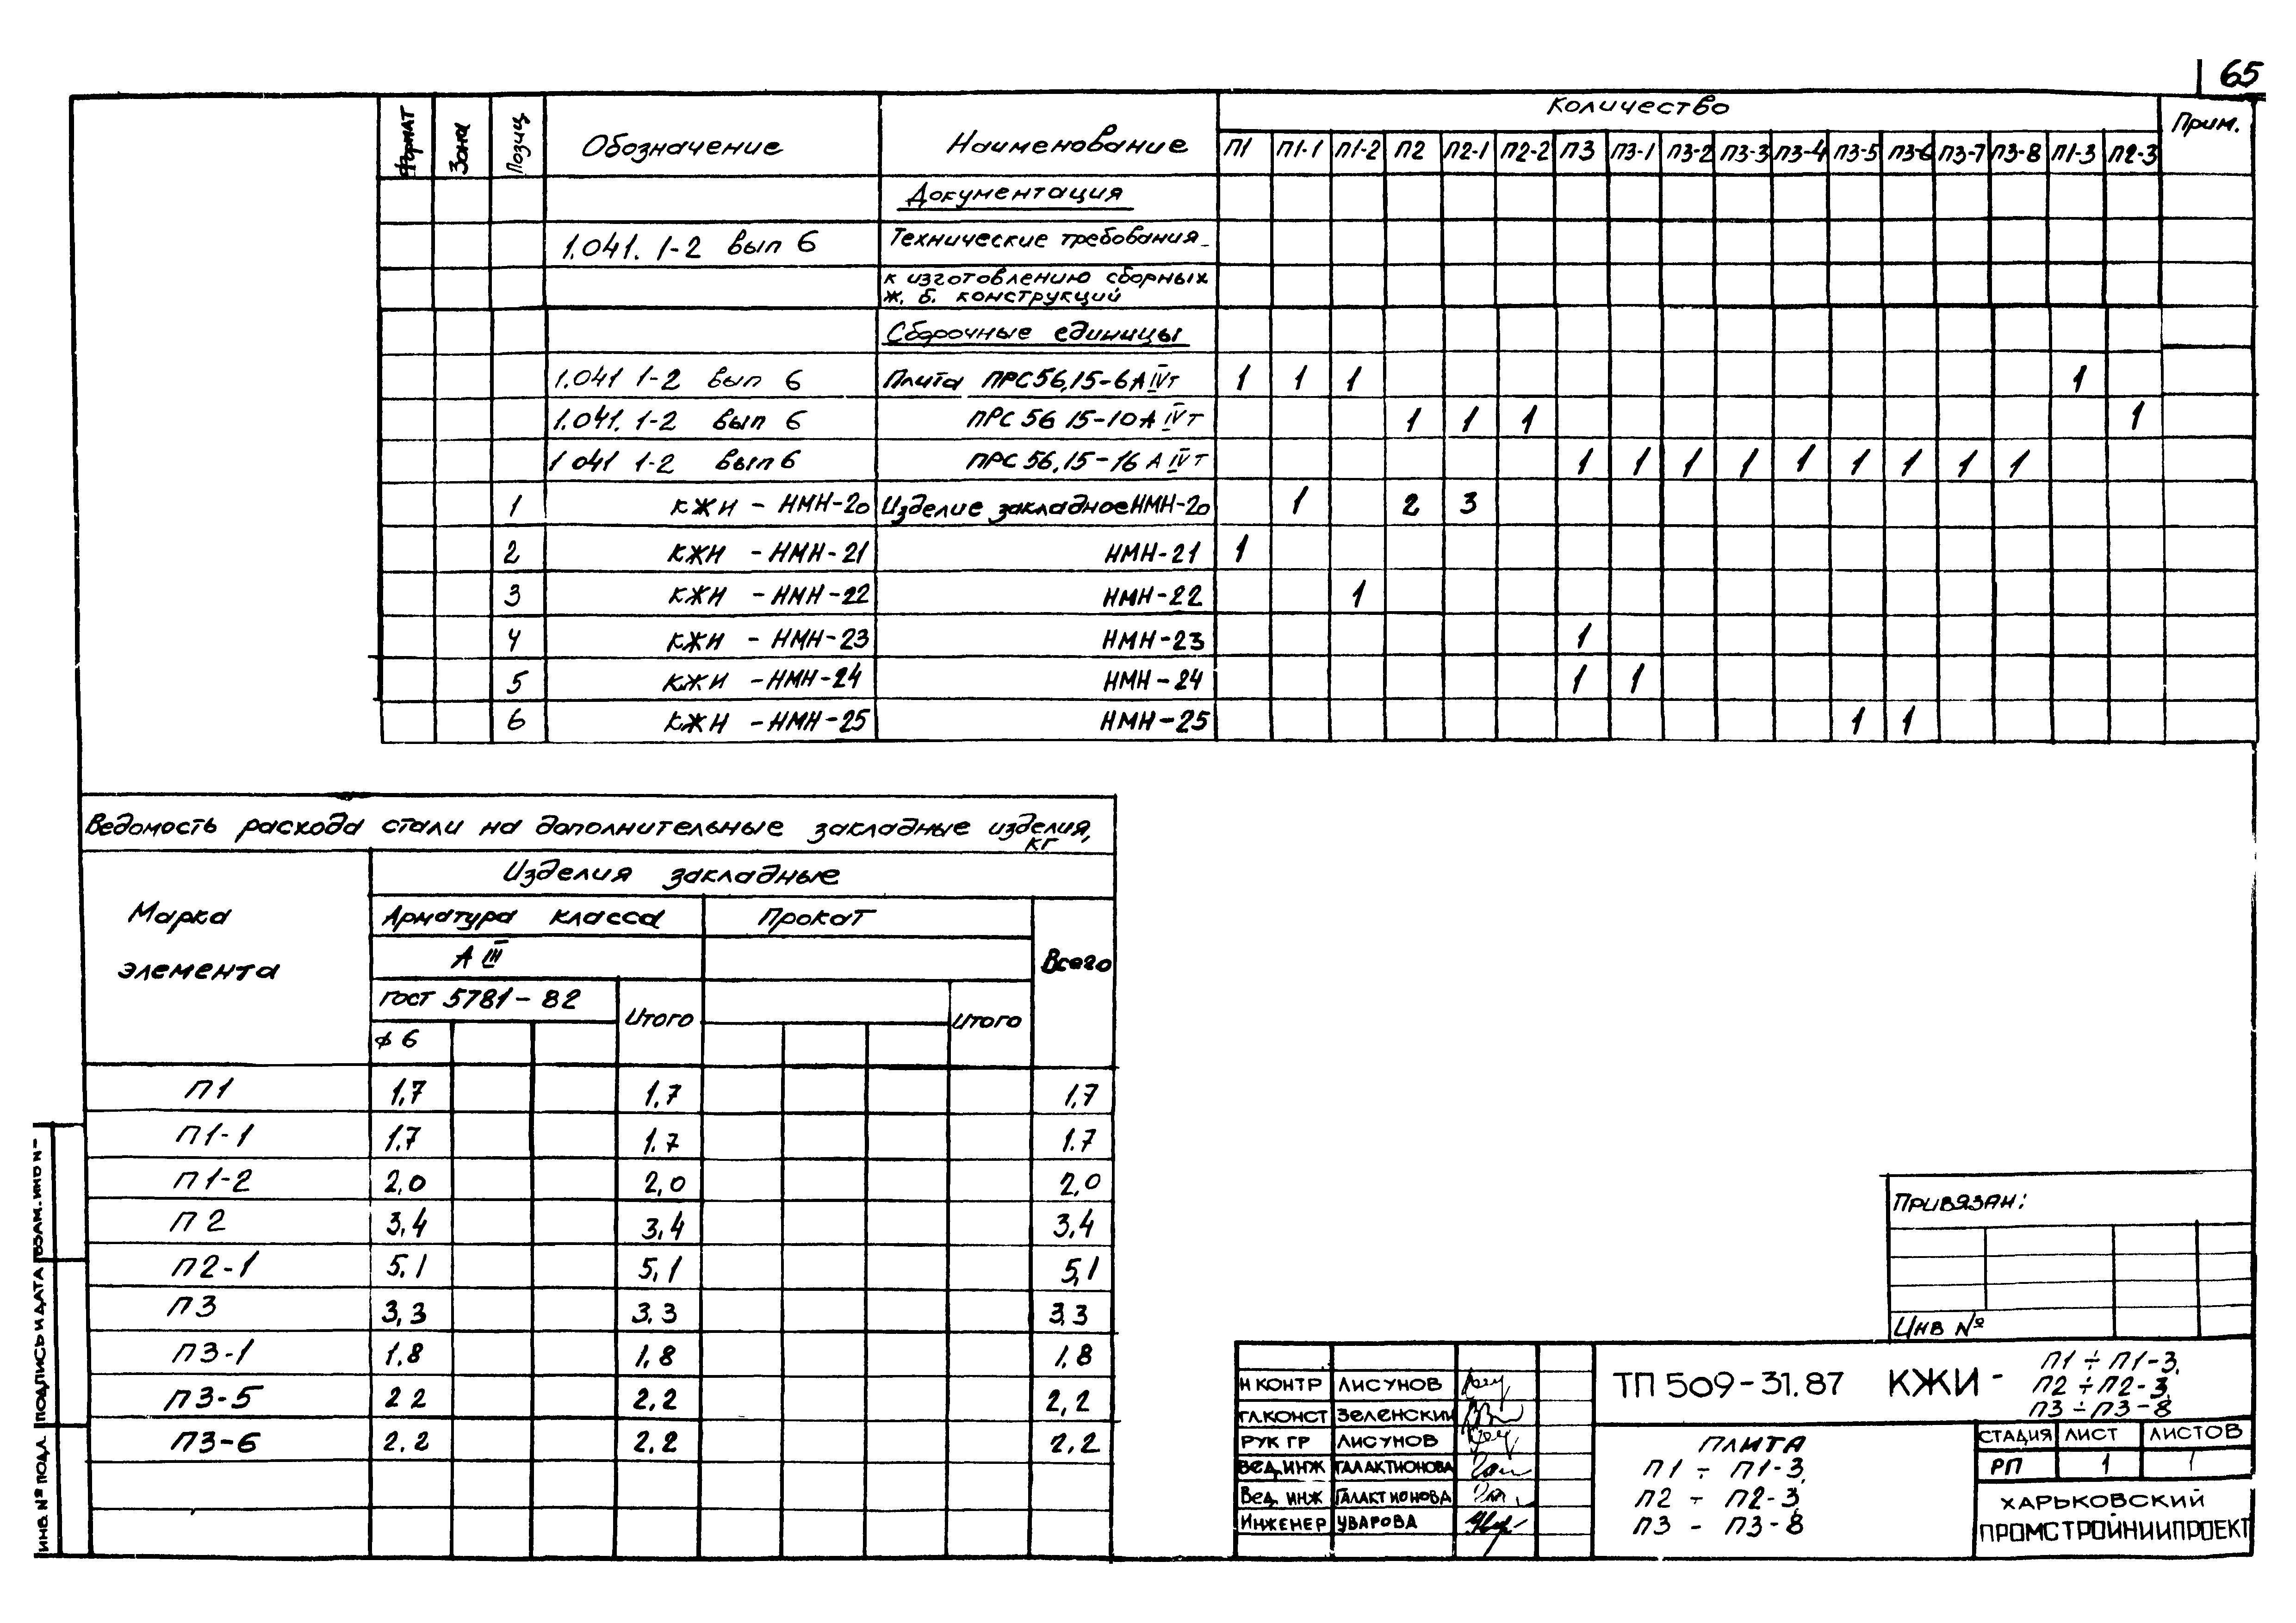 65
Формат Зона Позиц. Обозначение Наименование Количество Прим.
П1 П1-1 П1-2 П2 П2-1 П2-2 П3 П3-1 П3-2 П3-3 П3-4 П3-5 П3-6 П3-7 П3-8 П1-3 П2-3
Документация
1.041. 1-2 вып 6 Технические требования
к изготовлению сборных
ж. б. конструкций
Сборочные единицы
1.041 1-2 вып 6 Плита ПРС56,15-6АIVт 1 1 1 1
1.041. 1-2 вып 6 ПРС 56 15-10А IVт 1 1 1 1
1 041 1-2 вып 6 ПРС 56,15-16 А IVт 1 1 1 1 1 1 1 1 1
1 КЖИ - НМН-20 Изделие закладное НМН-20 1 2 3
2 КЖИ - НМН-21 НМН-21 1
3 КЖИ - НМН-22 НМН-22 1
4 КЖИ - НМН-23 НМН-23 1
5 КЖИ - НМН-24 НМН-24 1 1
6 КЖИ - НМН-25 НМН-25 1 1
Ведомость расхода стали на дополнительные закладные изделия,
кг
Марка
элемента
Изделия закладные
Арматура класса Прокат Всего
А III
ГОСТ 5781-82 Итого Итого
ф 6
П1 1,7 1,7 1,7
П1-1 1.7 1.7 1.7
П1-2 2,0 2,0 2,0
П2 3,4 3,4 3,4
П2-1 5,1 5,1 5,1
П3 3,3 3,3 3,3
П3-1 1.8 1,8 1,8
П3-5 2 2 2,2 2,2
П3-6 2,2 2,2 2,2
ИНВ. № ПОДЛ. ПОДПИСЬ И ДАТА ВЗАМ. ИНВ N-
Привязан:
Инв №
Н КОНТР ЛИСУНОВ
ГЛ.КОНСТ ЗЕЛЕНСКИЙ
РУК ГР ЛИСУНОВ
ВЕД.ИНЖ ГАЛАКТИОНОВА
ВЕД. ИНЖ ГАЛАКТИОНОВА
ИНЖЕНЕР УВАРОВА
ТП 509-31.87 КЖИ-
П1 ÷ П1-3,
П2 ÷ П2-3,
П3 ÷ П3-8
ПЛИТА
П1 ÷ П1-3,
П2 ÷ П2-3,
П3 - П3-8
СТАДИЯ ЛИСТ ЛИСТОВ
РП 1 1
ХАРЬКОВСКИЙ
ПРОМСТРОЙНИИПРОЕКТ